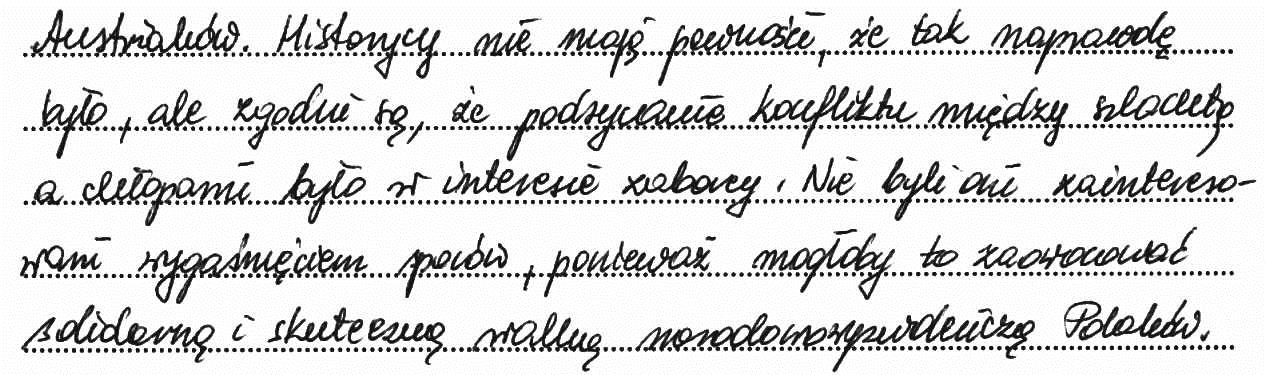 Austriaków. Historycy nie mają pewności, że tak naprawdę
było, ale zgodni są, że podsycanie konfliktu między szlachtą
a chłopami było w interesie zaborcy. Nie byli oni zaintereso-
wani wygaśnięciem sporów, ponieważ mogłoby to zaowocować
solidarną i skuteczną walką narodowowyzwoleńczą Polaków.